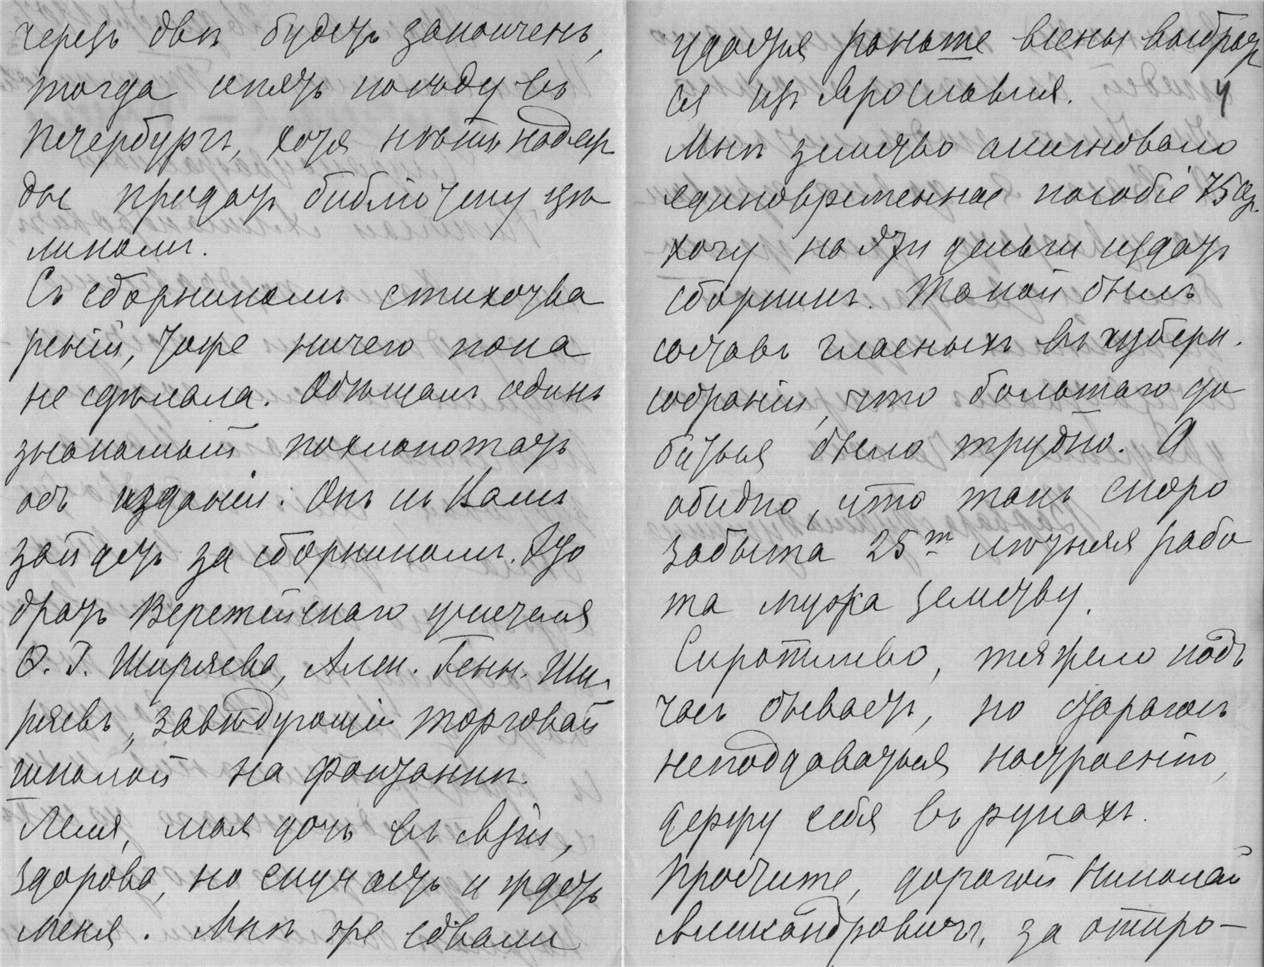 черезъ двѣ будетъ законченъ,
тогда опять поѣду въ
Петербургъ, хотя нѣтъ надеж
ды продать библіотеку цѣ
ликомъ.
Съ сборникомъ стихотво
реній, тоже ничего пока
не сдѣлала. Обѣщалъ одинъ
знакомый похлопотать
объ изданіи. Онъ къ Вамъ
зайдетъ за сборникомъ. Это
братъ Вережскаго учителя
Ѳ. Г. Ширяева, Алек. Генн. Ши-
ряевъ, завѣдующій торговой
школой на Фонтанкѣ.
Леля, моя дочь въ Азіи,
здорова, но скучаетъ и ждетъ
меня. Мнѣ же едвали
удастся раньше весны выбрать
ся изъ Ярославля.
4
Мнѣ земство ассигновало
единовременное пособіе 75
хочу на эти деньги издать
сборникъ. Такой былъ
составъ гласныхъ въ губерн.
собраніи, что большаго до
биться было трудно. А
обидно, что такъ скоро
забыта 25ти лѣтняя рабо
та мужа земству.
Сиротливо, тяжело подъ
часъ бываетъ, но стараюсь
неподдаваться настроенію,
держу себя въ рукахъ.
Простите, дорогой Николай
Александровичъ, за откро-